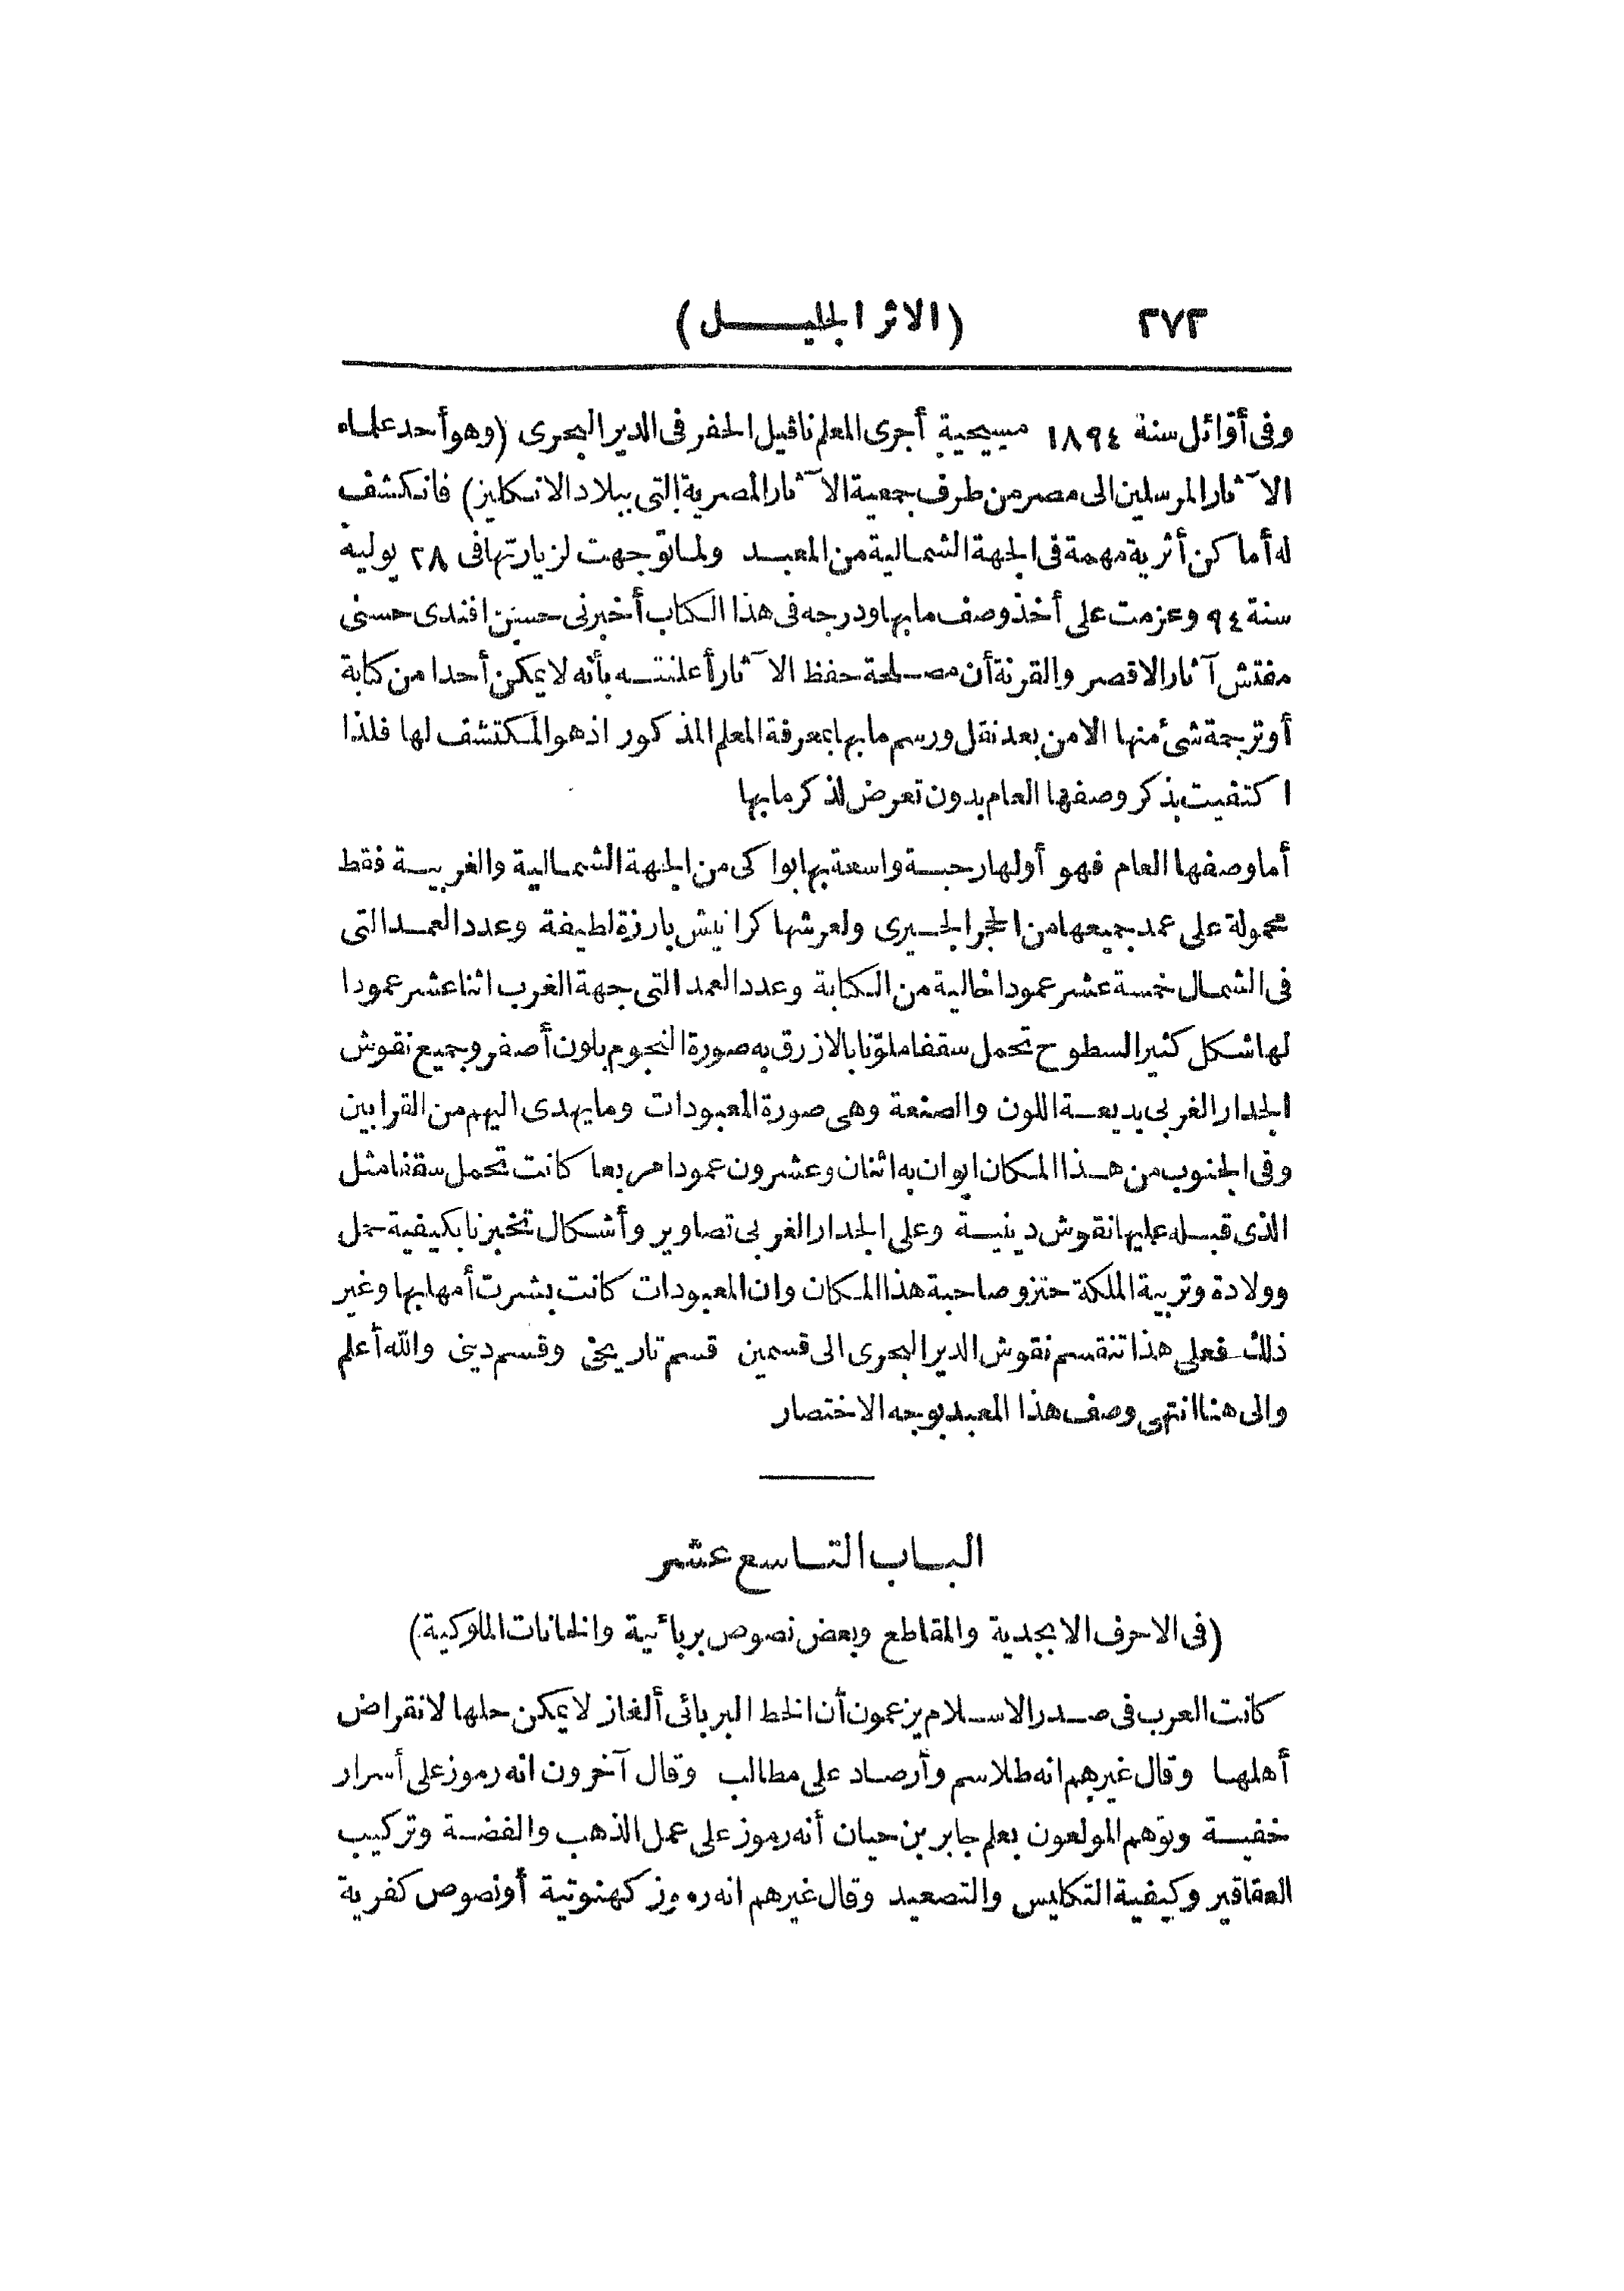 ٢٧٢ (الاثر الجليل)
وفى أوائل سنة ١٨٩٤ مسيحية أجرى المعلم ناڤيل الحفر فى الدير البحرى (وهو أحد علماء
الآثار المرسلين الى مصر من طرف جمعية الآثار المصرية التى ببلاد الانكليز) فانكشف
له أماكن أثرية مهمة فى الجهة الشمالية من المعبد ولما توجهت لزيارتها فى ٢٨ يولية
سنة ٩٤ وعزمت على أخذ وصف ما بها ودرجه فى هذا الكتاب أخبرنى حسين افندى حسنى
مفتش آثار الاقصر والقرنة أن مصلحة حفظ الآثار أعلنته بأنه لا يمكن أحدا من كتابة
أو ترجمة شئ منها الا من بعد نقل ورسم ما بها بمعرفة المعلم المذكور اذ هو المكتشف لها فلذا
اكتفيت بذكر وصفها العام بدون تعرض لذكر ما بها
أما وصفها العام فهو أولها رحبة واسعة بها بواكى من الجهة الشمالية والغربية فقط
محمولة على عمد جميعها من الحجر الجيرى ولعرشها كرانيش بارزة لطيفة وعدد العمد التى
فى الشمال خمسة عشر عمودا خالية من الكتابة وعدد العمد التى جهة الغرب اثنا عشر عمودا
لها شكل كثير السطوح تحمل سقفا ملوّنا بالازرق به صورة النجوم بلون أصفر وجميع نقوش
الجدار الغربى بديعة اللون والصنعة وهى صورة المعبودات وما يهدى اليهم من القرابين
وفى الجنوب من هذا المكان ايوان به اثنان وعشرون عمودا مربعا كانت تحمل سقفا مثل
الذى قبله عليها نقوش دينية وعلى الجدار الغربى تصاوير وأشكال تخبرنا بكيفية حمل
وولادة وتربية الملكة حتزو صاحبة هذا المكان وان المعبودات كانت بشرت أمها بها وغير
ذلك فعلى هذا تنقسم نقوش الدير البحرى الى قسمين قسم تاريخى وقسم دينى والله أعلم
والى هنا انتهى وصف هذا المعبد بوجه الاختصار
الباب التاسع عشر
(فى الاحرف الابجدية والمقاطع وبعض نصوص بربائية والخانات الملوكية)
كانت العرب فى صدر الاسلام يزعمون أن الخط البربائى ألغاز لا يمكن حلها لانقراض
أهلها وقال غيرهم انه طلاسم وأرصاد على مطالب وقال آخرون انه رموز على أسرار
خفية وتوهم المولعون بعلم جابر بن حيان أنه رموز على عمل الذهب والفضة وتركيب
العقاقير وكيفية التكليس والتصعيد وقال غيرهم انه رموز كهنوتية أو نصوص كفرية